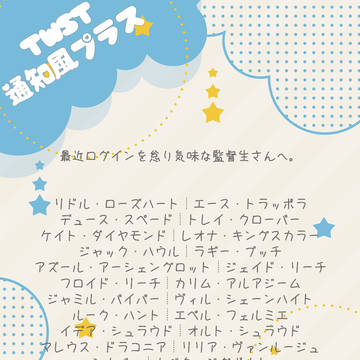 TWST
通知風プラス
最近ログインを怠り気味な監督生さんへ。
リドル・ローズハート┊エース・トラッポラ
デュース・スペード┊トレイ・クローバー
ケイト・ダイヤモンド┊レオナ・キングスカラー
ジャック・ハウル┊ラギー・ブッチ
アズール・アーシェングロット┊ジェイド・リーチ
フロイド・リーチ┊カリム・アルアジーム
ジャミル・バイパー┊ヴィル・シェーンハイト
ルーク・ハント┊エペル・フェルミエ
イデア・シュラウド┊オルト・シュラウド
マレウス・ドラコニア┊リリア・ヴァンルージュ